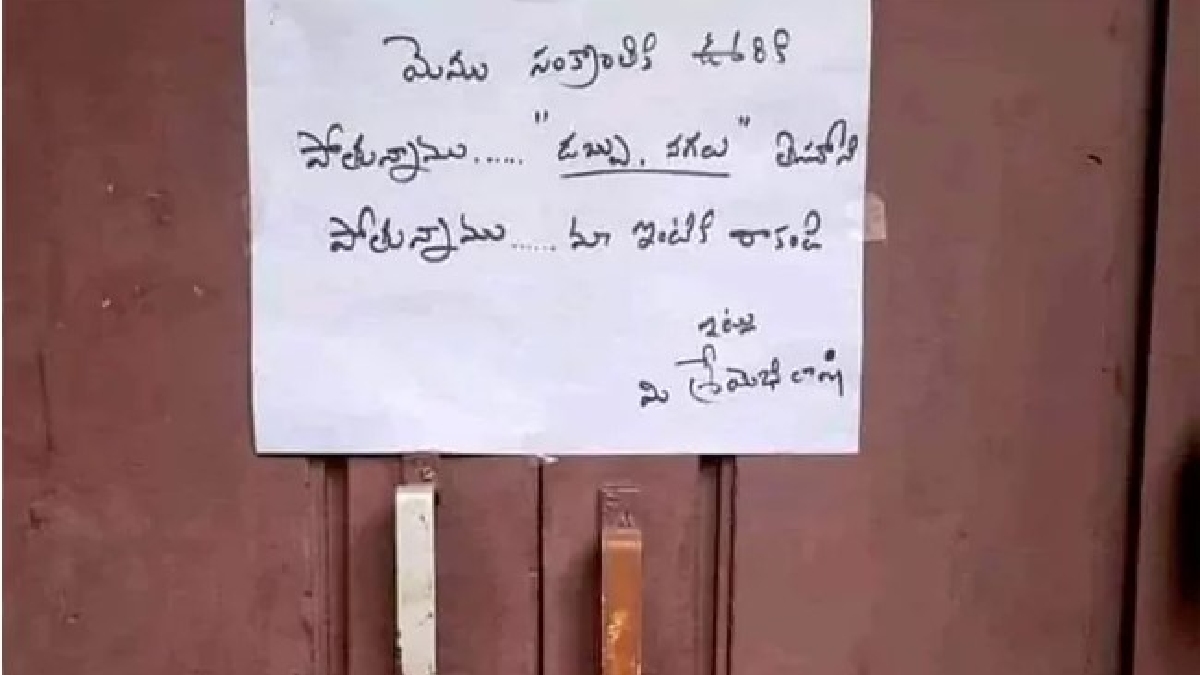 మేము సంక్రాంతికి ఊరికి
పోతున్నాము...... "డబ్బు, నగలు" తీసుకొని
పోతున్నాము...... మా ఇంటికి రాకండి
ఇట్లు
మి శ్రేయోభిలాషి